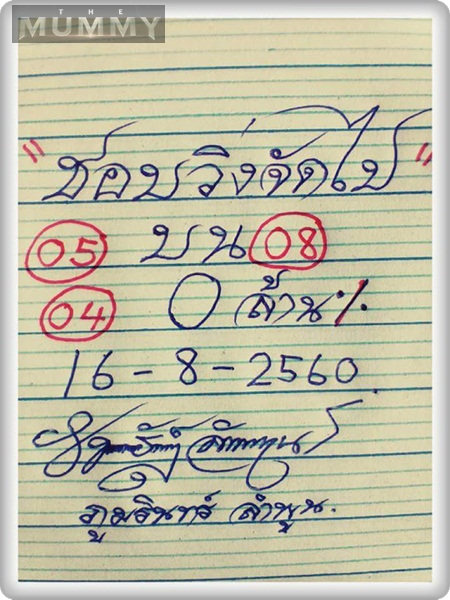 THE
MUMMY
"ชอบวิ่งจัดไป"
05 บน 08
04 0 ล้าน%
16-8-2560
ภูมรินทร์ ลำพูน.